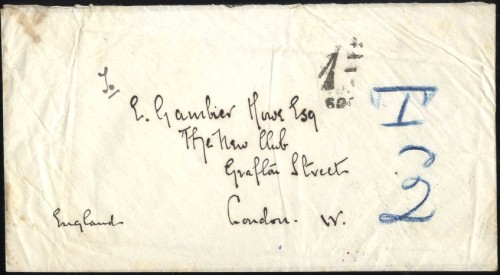 To
E. Gambier Howe Esq
The New Club
Grafton Street
London. W.
England
T
2